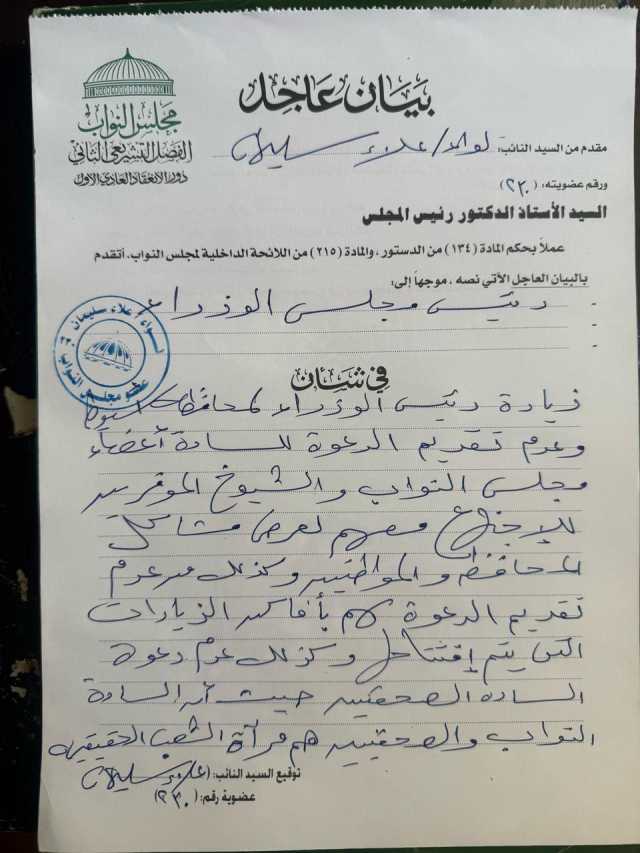 مجلس النواب
الفصل التشريعي الثاني
دور الانعقاد العادي الأول
بيان عاجل
مقدم من السيد النائب: لواء/ علاء سليمان
ورقم عضويته: (٢٣٠)
السيد الأستاذ الدكتور رئيس المجلس
عملاً بحكم المادة (١٣٤) من الدستور، والمادة (٢١٥) من اللائحة الداخلية لمجلس النواب، أتقدم
بالبيان العاجل الآتي نصه، موجهاً إلى:
- رئيس مجلس الوزراء
-
-
لواء / علاء سليمان
عضو مجلس النواب
في شأن
زيارة رئيس الوزراء لمحافظة أسيوط
وعدم تقديم الدعوة للسادة أعضاء
مجلس النواب والشيوخ الموقرين
للإجتماع معهم لعرض مشاكل
المحافظة والمواطنين وكذلك عدم
تقديم الدعوة لهم بأماكن الزيارات
التي يتم إفتتاحها وكذلك عدم دعوة
السادة الصحفيين حيث أن السادة
النواب والصحفيين هم مرآة الشعب الحقيقية
توقيع السيد النائب: (علاء سليمان)
عضوية رقم: (٢٣٠)